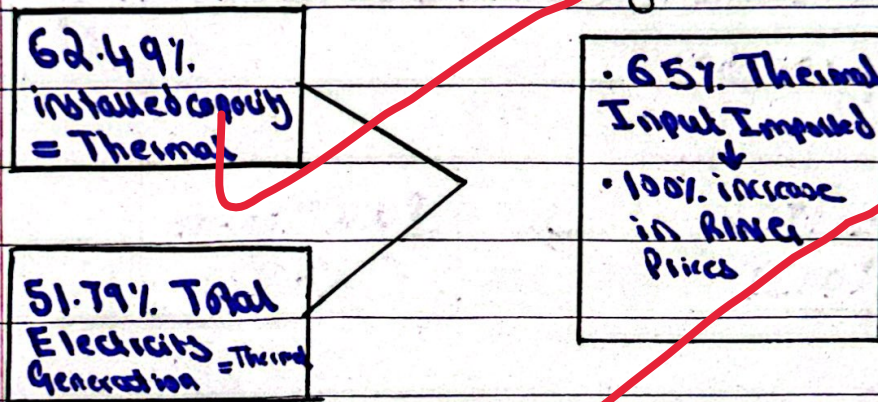 62.49%.
installed capacity
= Thermal
51.79%. Total
Electricity = Thermal
Generation
• 65% Thermal
Input Imported
↓
• 100% increase
in RLNG
Prices